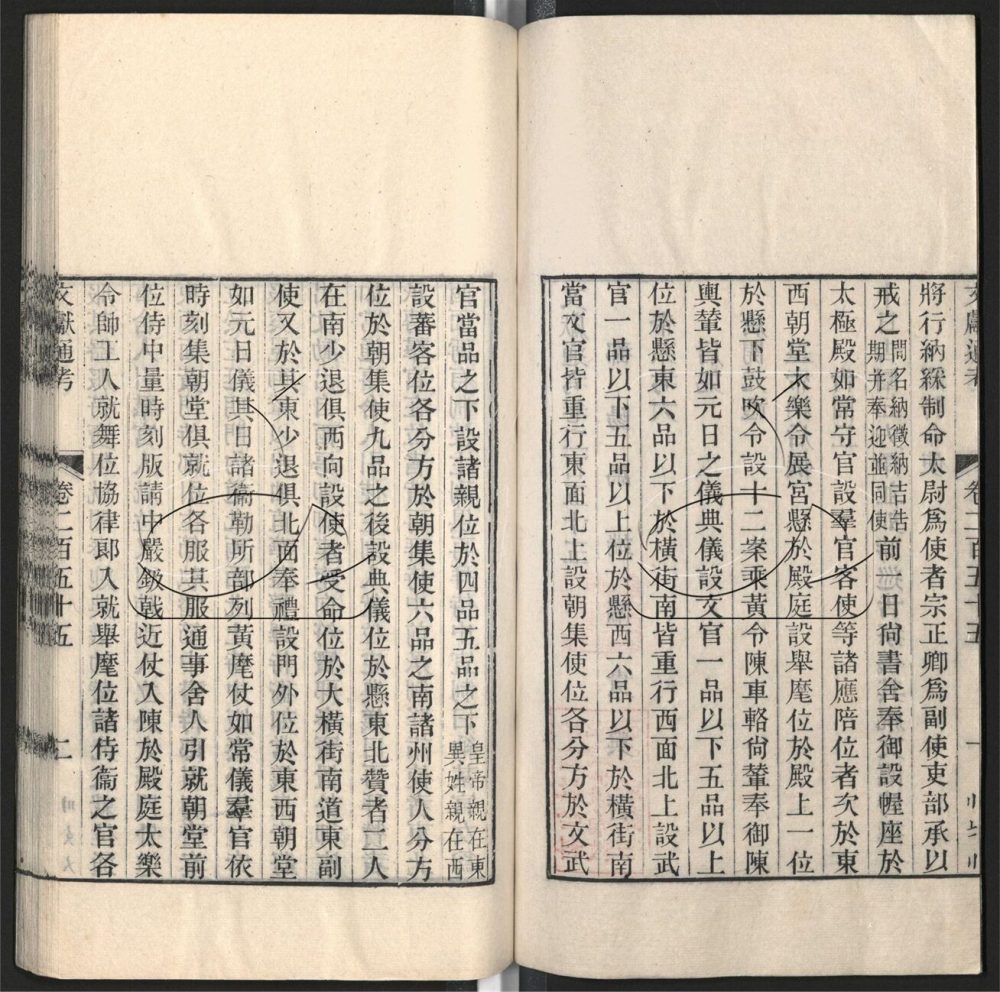 將行納綵制命太尉爲使者宗正卿爲副使吏部承以
戒之問名納徵納吉告期并奉迎並同使前一日尙書舍奉御設幄座於
太極殿如常守官設羣官客使等諸應陪位者次於東
西朝堂太樂令展宮懸於殿庭設舉麾位於殿上一位
於懸下鼓吹令設十二案乘黃令陳車輅尙輦奉御陳
輿輦皆如元日之儀典儀設文官一品以下五品以上
位於懸東六品以下於橫街南皆重行西面北上設武
官一品以下五品以上位於懸西六品以下於橫街南
當文官皆重行東面北上設朝集使位各分方於文武
文獻通考 卷二百五十五 一
官當品之下設諸親位於四品五品之下皇帝親在東異姓親在西
設蕃客位各分方於朝集使六品之南諸州使人分方
位於朝集使九品之後設典儀位於懸東北贊者二人
在南少退俱西向設使者受命位於大橫街南道東副
使又於其東少退俱北面奉禮設門外位於東西朝堂
如元日儀其日諸衞勒所部列黃麾仗如常儀羣官依
時刻集朝堂俱就位各服其服通事舍人引就朝堂前
位侍中量時刻版請中嚴鈒戟近仗入陳於殿庭太樂
令帥工人就舞位協律郞入就舉麾位諸侍衞之官各
文獻通考 卷二百五十五